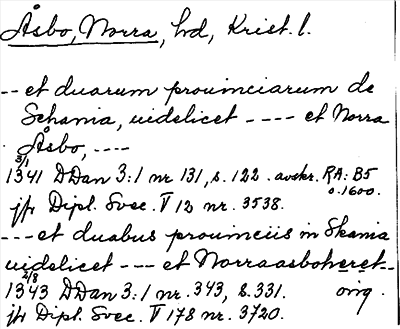 Åsbo, Norra, hd, Krist. l.
-- et duarum prouinciarum de
Schania, uidelicet ---- et Norra
Åsbo, ----
3/1
1341 DDan 3:1 nr 131, s. 122. avskr. RA: B5
o. 1600.
jfr Dipl. Svec. V 12 nr. 3538.
--- et duabus prouinciis in Skania
uidelicet --- et Norraasboheret--
2/8
1343 DDan 3:1 nr. 343, s. 331. orig.
jfr Dipl. Svec. V 178 nr. 3720.